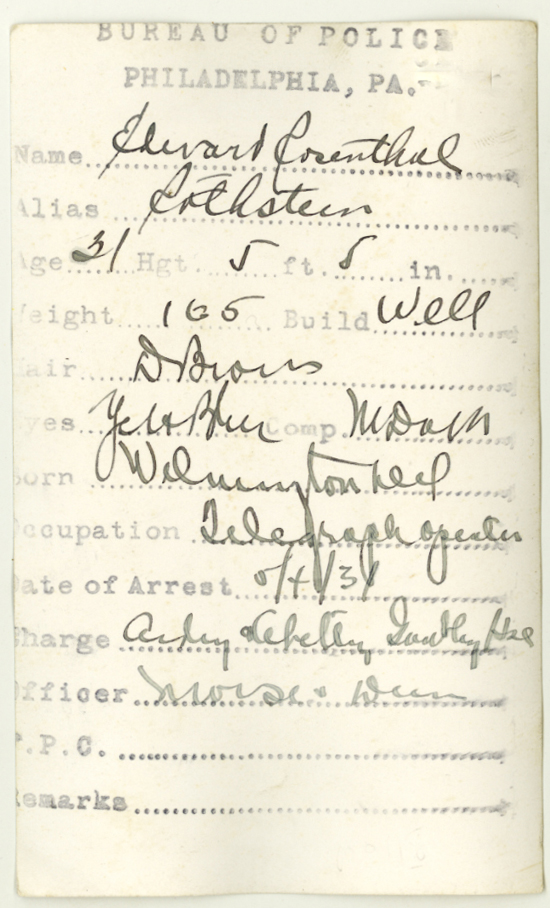 BUREAU OF POLICE
PHILADELPHIA, PA.
Name Edward Rosenthal
Alias Rothstein
Age 31 Hgt. 5 ft. 8 in.
Weight 165 Build Well
Hair D Brown
Eyes Comp. M Dark
Born Wilmington Del
Occupation Telegraph operator
Date of Arrest 5/4/31
Charge Aiding & Abetting
Officer Morse & Dunn
P.P.C.
Remarks